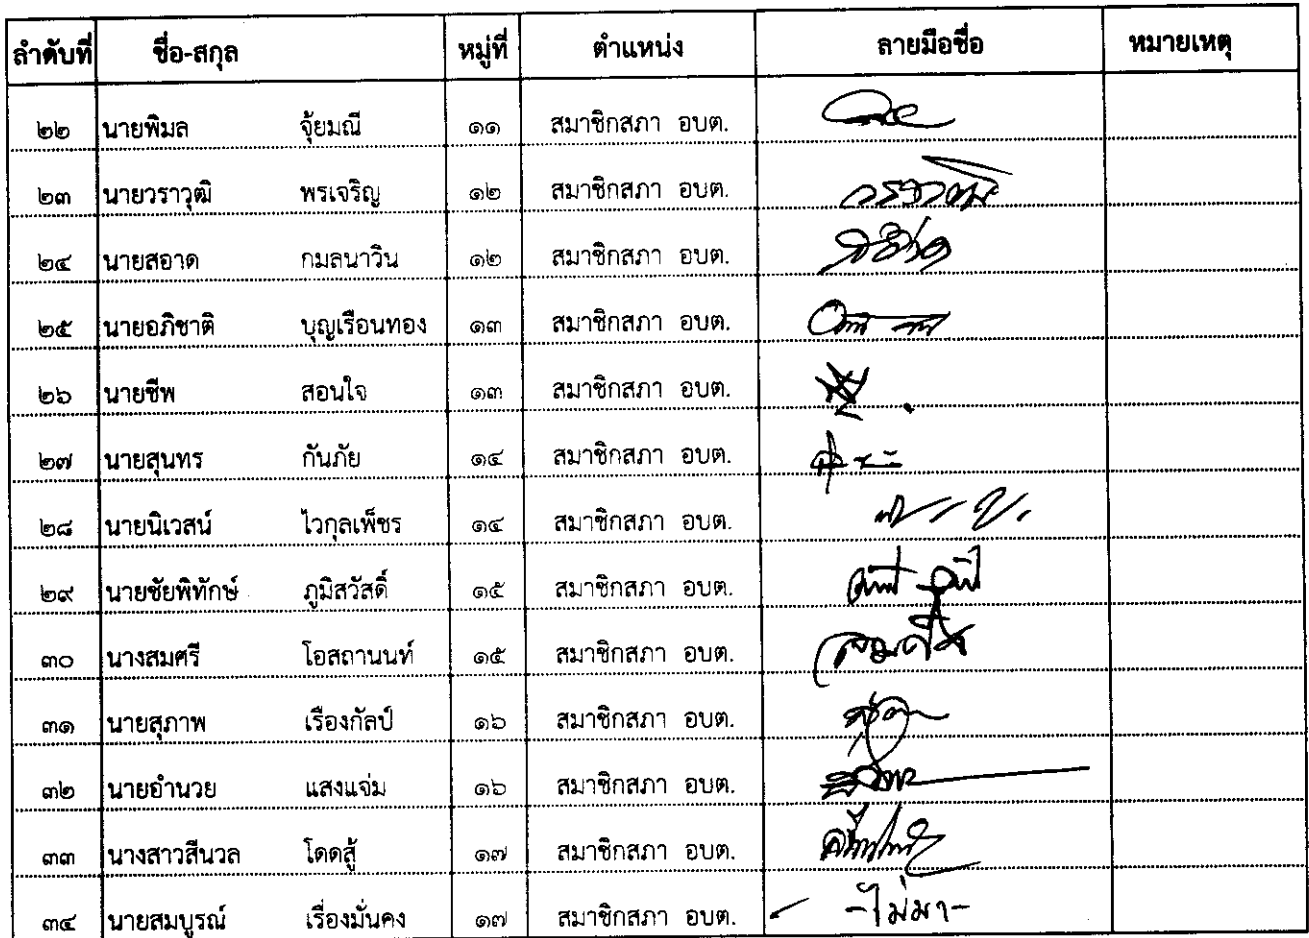 ลำดับที่ ชื่อ-สกุล หมู่ที่ ตำแหน่ง ลายมือชื่อ หมายเหตุ
๒๒ นายพิมล จุ้ยมณี ๑๑ สมาชิกสภา อบต.
๒๓ นายวราวุฒิ พรเจริญ ๑๒ สมาชิกสภา อบต.
๒๔ นายสอาด กมลนาวิน ๑๒ สมาชิกสภา อบต.
๒๕ นายอภิชาติ บุญเรือนทอง ๑๓ สมาชิกสภา อบต.
๒๖ นายชีพ สอนใจ ๑๓ สมาชิกสภา อบต.
๒๗ นายสุนทร กันภัย ๑๔ สมาชิกสภา อบต.
๒๘ นายนิเวสน์ ไวกุลเพ็ชร ๑๔ สมาชิกสภา อบต.
๒๙ นายชัยพิทักษ์ ภูมิสวัสดิ์ ๑๕ สมาชิกสภา อบต.
๓๐ นางสมศรี โอสถานนท์ ๑๕ สมาชิกสภา อบต.
๓๑ นายสุภาพ เรืองกัลป์ ๑๖ สมาชิกสภา อบต.
๓๒ นายอำนวย แสงแจ่ม ๑๖ สมาชิกสภา อบต.
๓๓ นางสาวสีนวล โดดสู้ ๑๗ สมาชิกสภา อบต.
๓๔ นายสมบูรณ์ เรื่องมั่นคง ๑๗ สมาชิกสภา อบต. -ไม่มา-